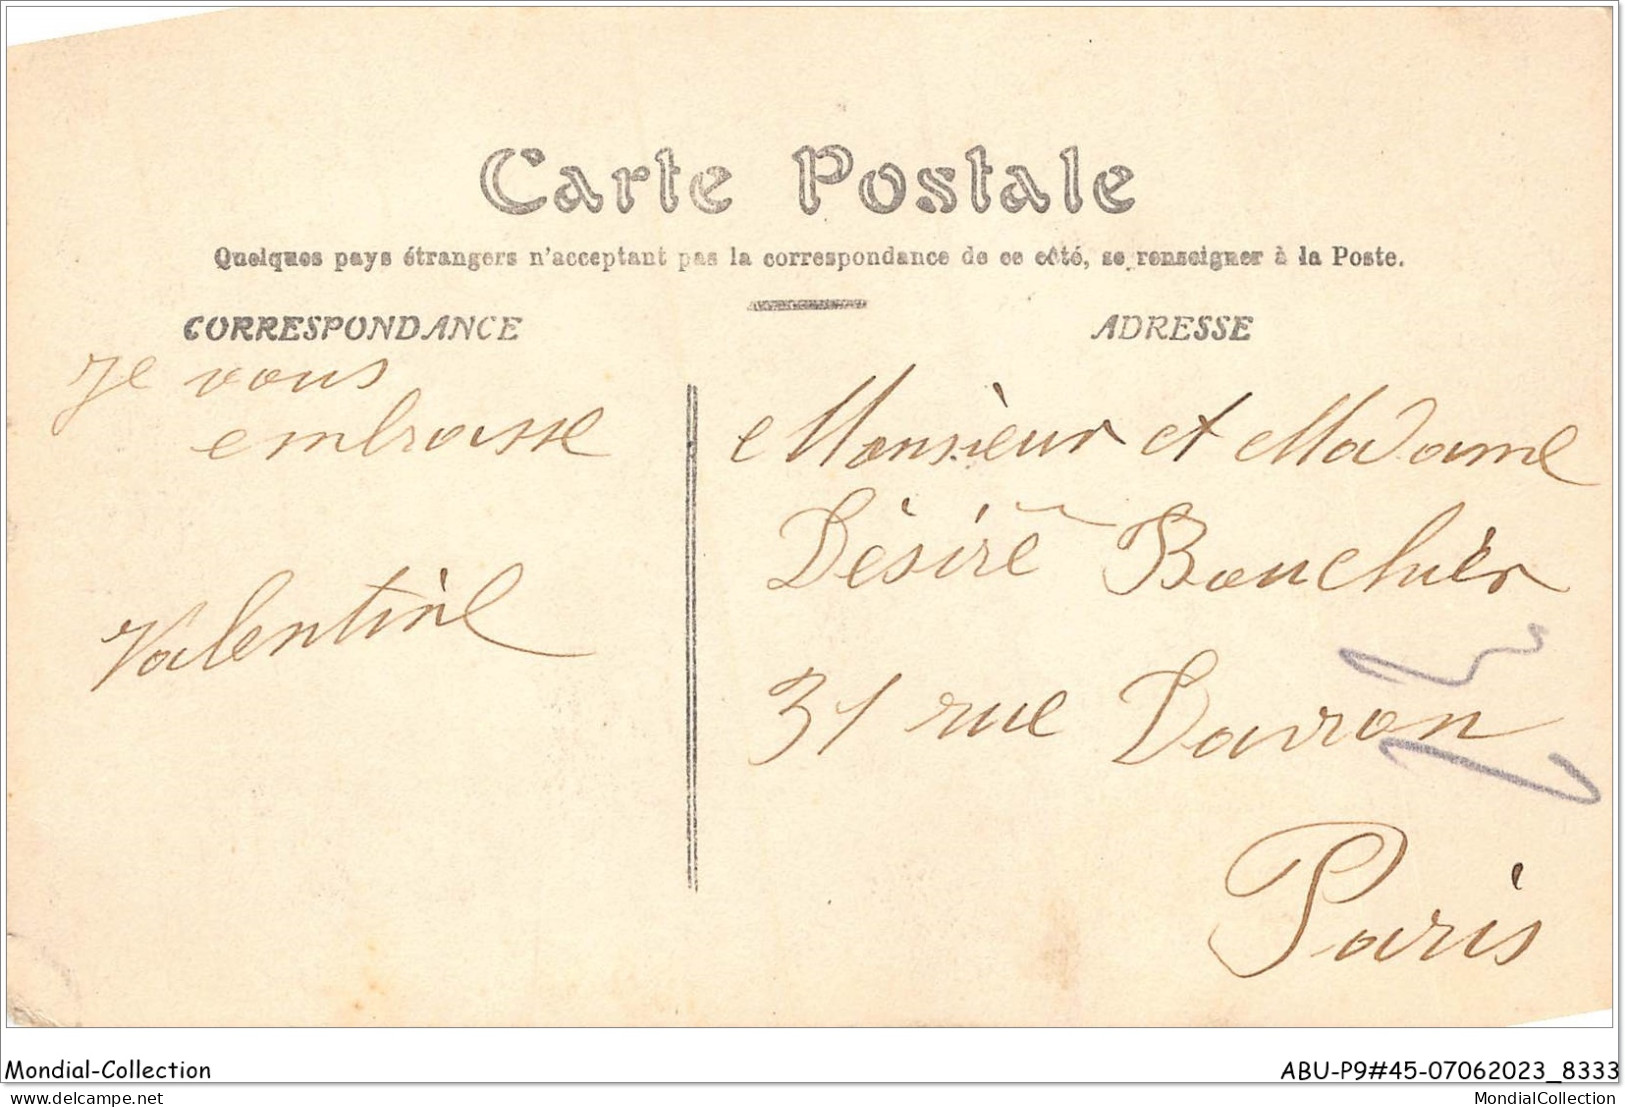 Carte Postale
Quelques pays étrangers n'acceptant pas la correspondance de ce côté, se renseigner à la Poste.
CORRESPONDANCE
ADRESSE
Je vous
embrasse
Valentine
Monsieur et Madame
Désiré Bouchier
31 rue Davron
Paris
Mondial-Collection
ABU-P9#45-07062023_8333
delcampe.net
MondialCollection